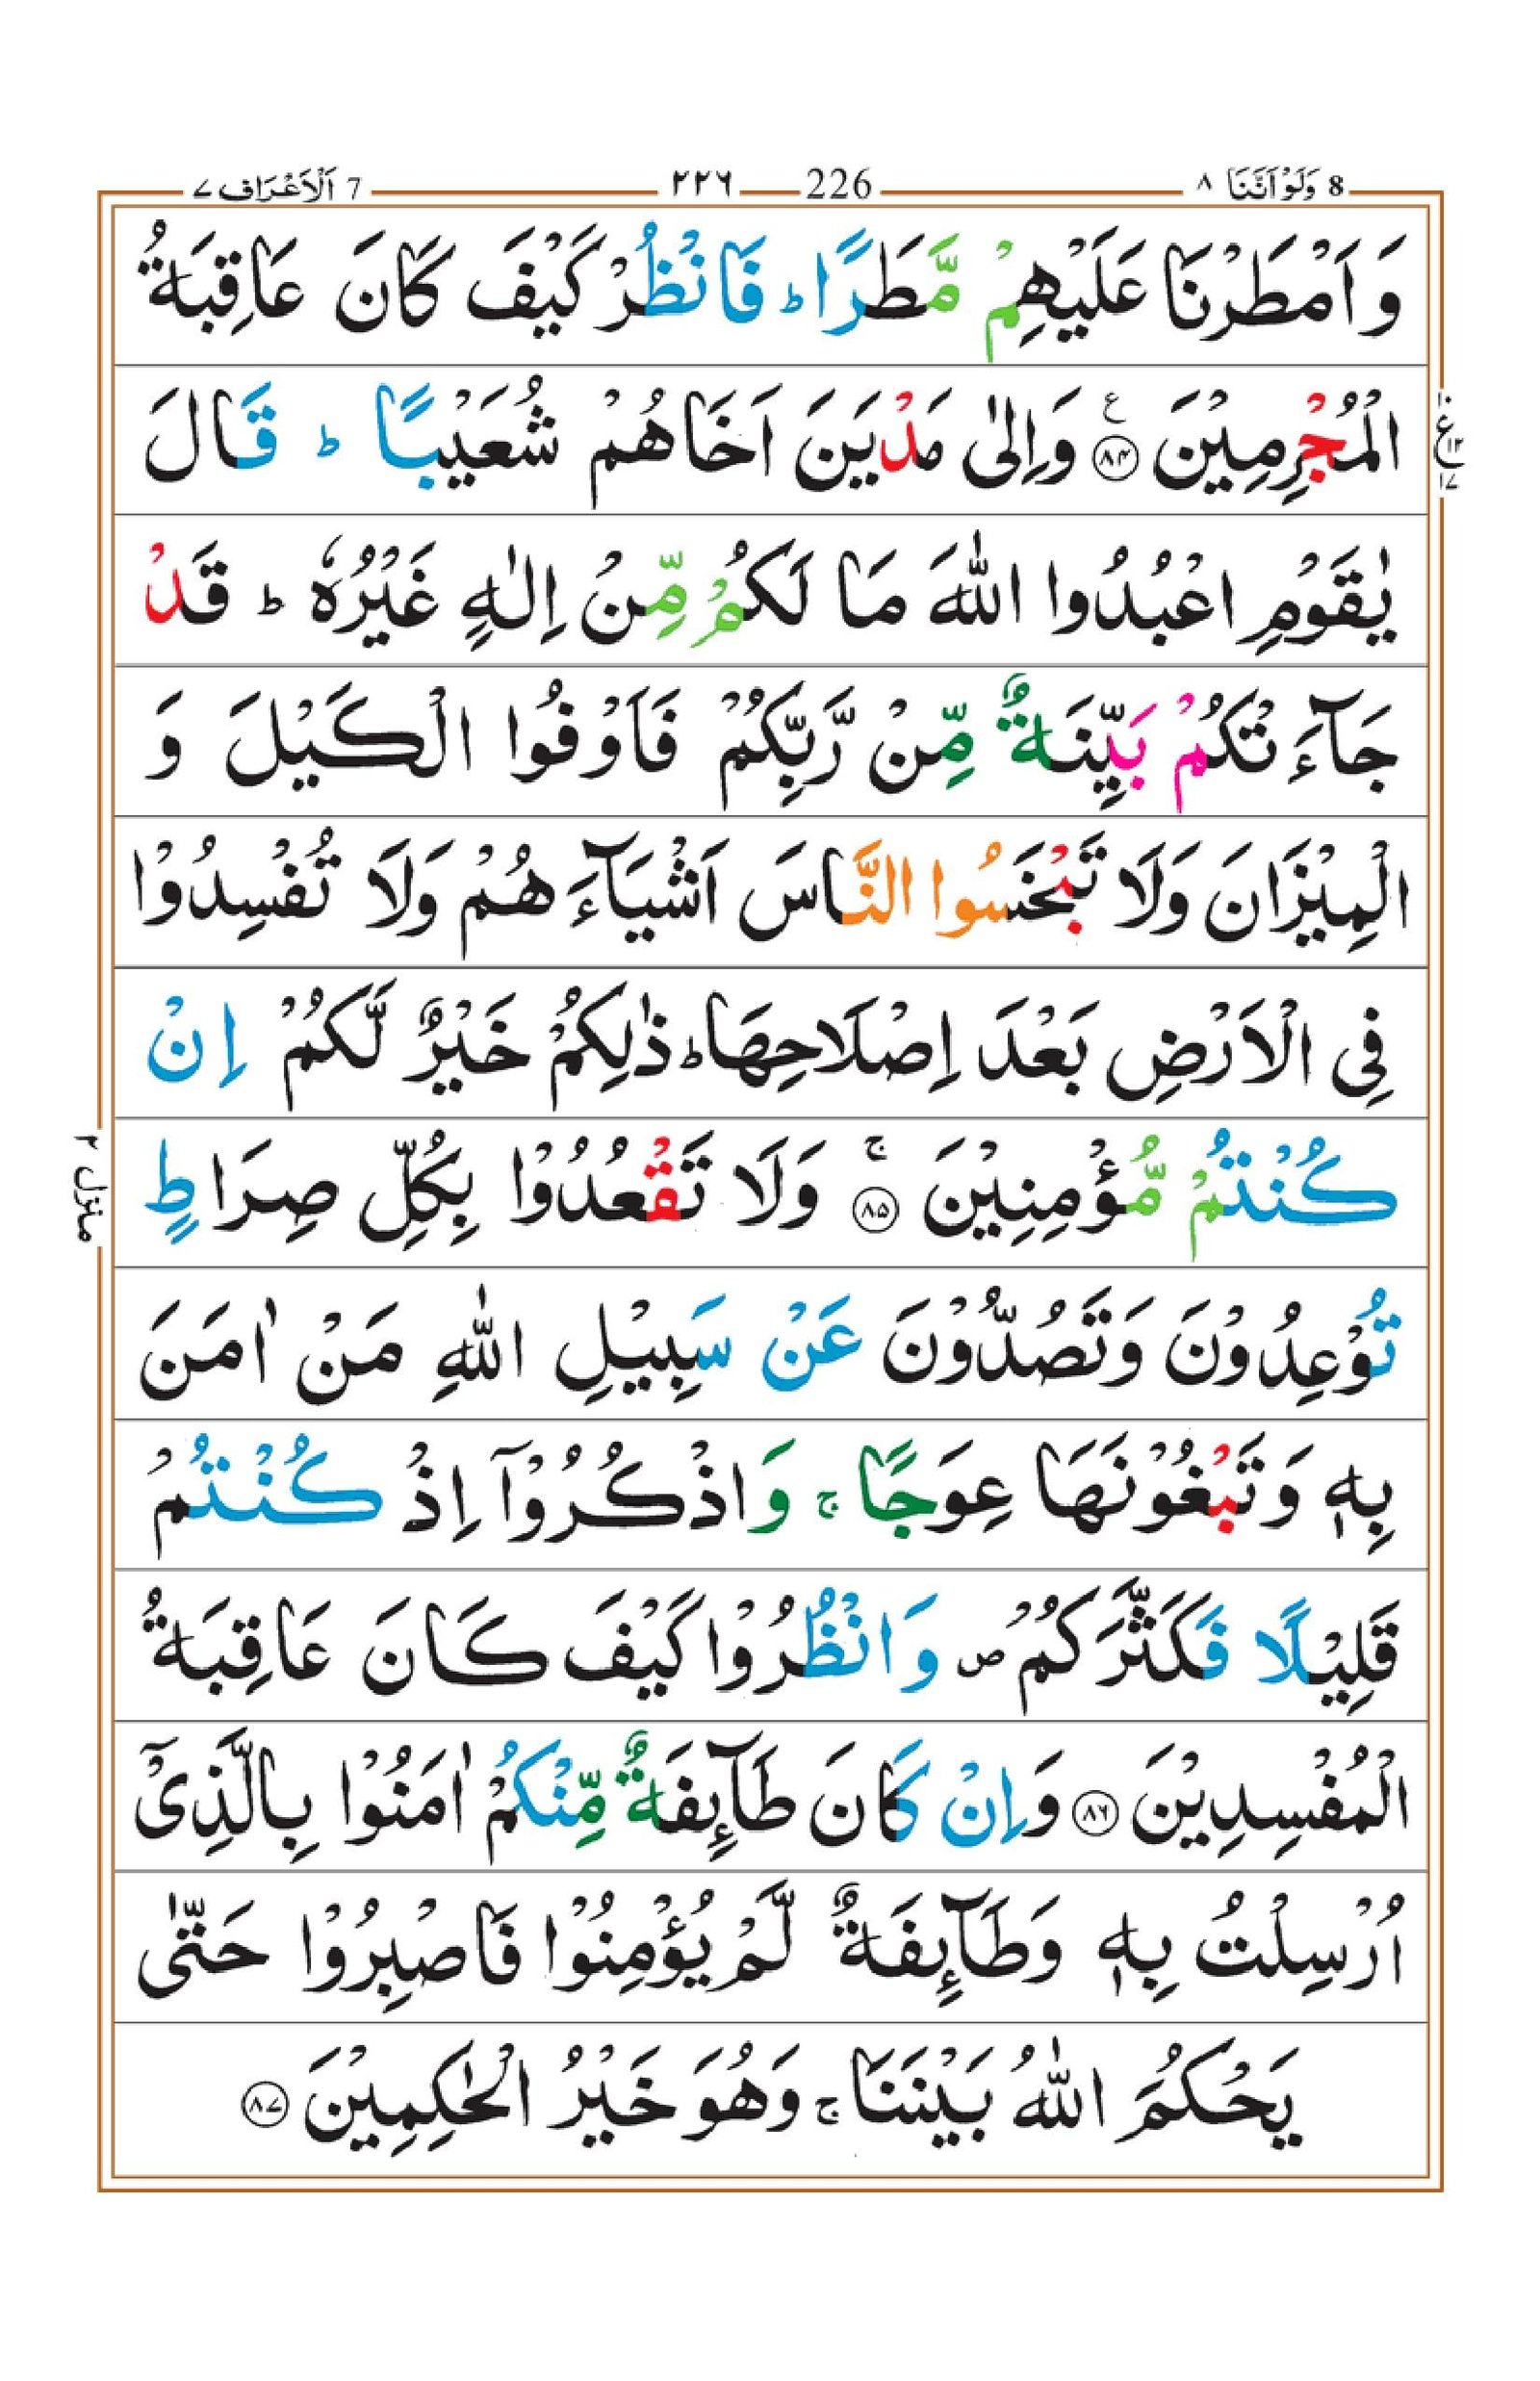 8 وَلَوْ اَنَّنَا ۸ 226 ۲۲۶ 7 اَلْاَعْرَاف ۷
وَ اَمْطَرْنَا عَلَيْهِمْ مَّطَرًا ؕ فَانْظُرْ كَيْفَ كَانَ عَاقِبَةُ
الْمُجْرِمِيْنَ ۸۴ ع وَاِلٰى مَدْيَنَ اَخَاهُمْ شُعَيْبًا ؕ قَالَ
ع ۱۰ ۱۲ ۱۷
يٰقَوْمِ اعْبُدُوا اللّٰهَ مَا لَكُمْ مِّنْ اِلٰهٍ غَيْرُهٗ ؕ قَدْ
جَآءَ تْكُمْ بَيِّنَةٌ مِّنْ رَّبِّكُمْ فَاَوْفُوا الْكَيْلَ وَ
الْمِيْزَانَ وَلَا تَبْخَسُوا النَّاسَ اَشْيَآءَ هُمْ وَلَا تُفْسِدُوْا
فِى الْاَرْضِ بَعْدَ اِصْلَاحِهَا ؕ ذٰلِكُمْ خَيْرٌ لَّكُمْ اِنْ
كُنْتُمْ مُّؤْمِنِيْنَ ۚ ۸۵ وَلَا تَقْعُدُوْا بِكُلِّ صِرَاطٍ
منزل ۲
تُوْعِدُوْنَ وَتَصُدُّوْنَ عَنْ سَبِيْلِ اللّٰهِ مَنْ اٰمَنَ
بِهٖ وَتَبْغُوْنَهَا عِوَجًا ۚ وَاذْكُرُوْۤا اِذْ كُنْتُمْ
قَلِيْلًا فَكَثَّرَكُمْ ص وَانْظُرُوْا كَيْفَ كَانَ عَاقِبَةُ
الْمُفْسِدِيْنَ ۸۶ وَاِنْ كَانَ طَآئِفَةٌ مِّنْكُمْ اٰمَنُوْا بِالَّذِىْۤ
اُرْسِلْتُ بِهٖ وَطَآئِفَةٌ لَّمْ يُؤْمِنُوْا فَاصْبِرُوْا حَتّٰى
يَحْكُمَ اللّٰهُ بَيْنَنَا ۚ وَهُوَ خَيْرُ الْحٰكِمِيْنَ ۸۷